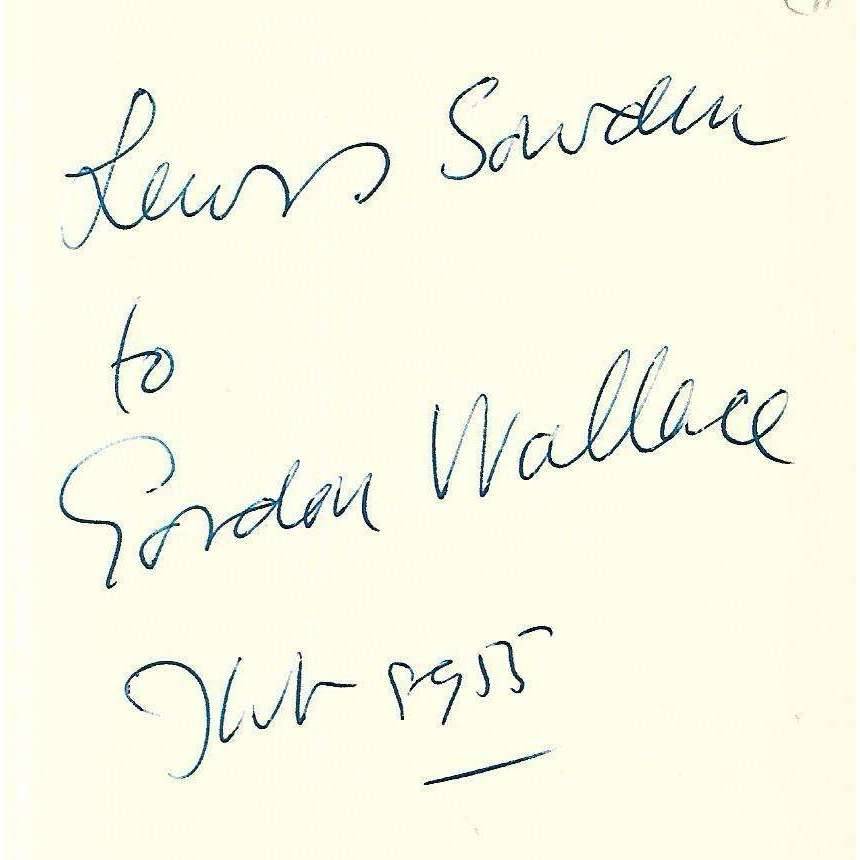 Lewis Sowden
to
Gordon Wallace
1955